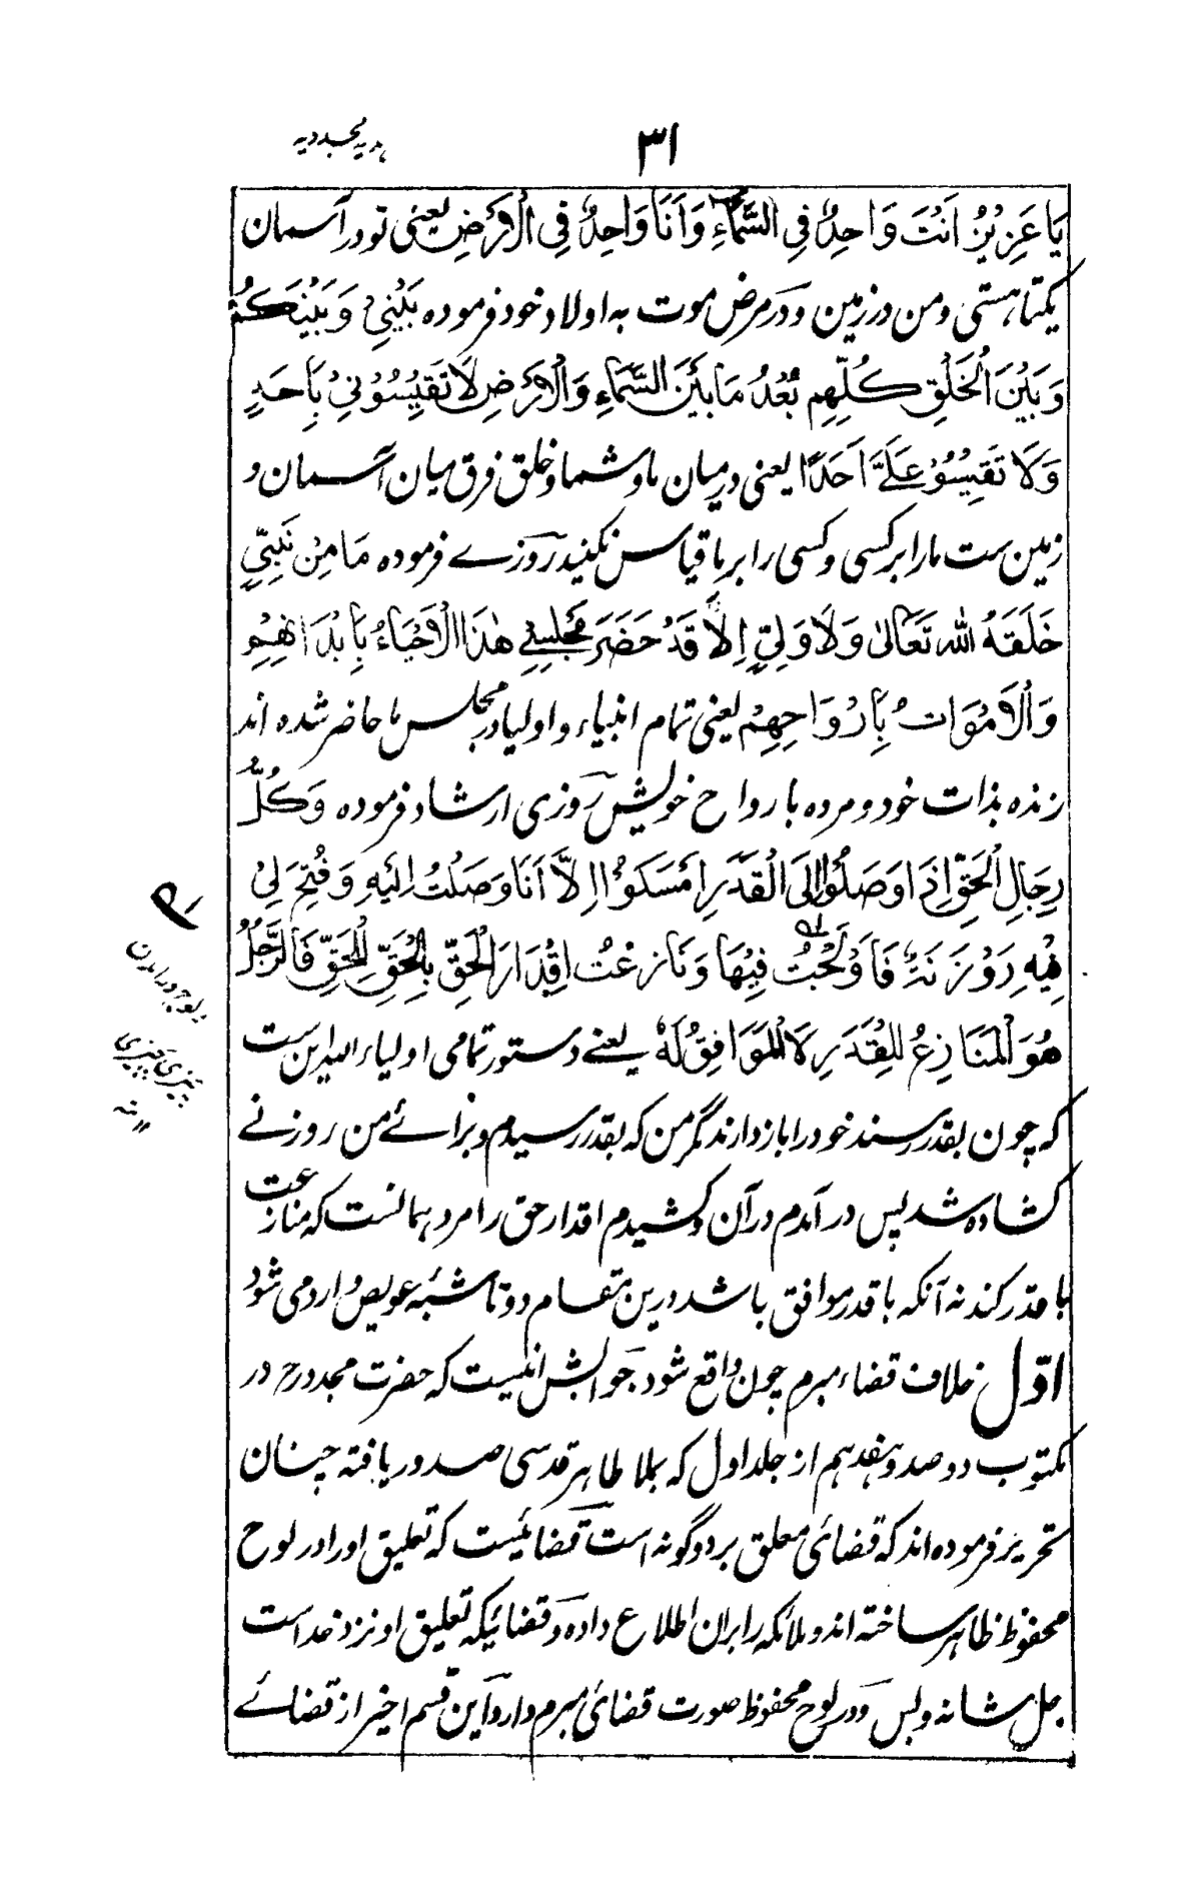 ۳۱
ہدیہ مجددیہ
یَا عَزِیْزُ اَنْتَ وَاحِدٌ فِی السَّمَآءِ وَاَنَا وَاحِدٌ فِی الْاَرْضِ یعنی تو در آسمان
یکتا ہستی و من در زمین و در مرض موت بہ اولاد خود فرمودہ بَیْنِیْ وَبَیْنَکُمْ
وَبَیْنَ الْخَلْقِ کُلِّهِمْ بُعْدُ مَا بَیْنَ السَّمَاءِ وَالْاَرْضِ لَا تَقِیْسُوْنِیْ بِاَحَدٍ
وَلَا تَقِیْسُوْا عَلَیَّ اَحَدًا یعنی درمیان ما و شما و خلق فرق میان آسمان و
زمین ست ما را بر کسی و کسی را بر ما قیاس نکنید روزے فرمودہ مَا مِنْ نَبِیٍّ
خَلَقَهُ اللّٰهُ تَعَالٰی وَلَا وَلِیٍّ اِلَّا قَدْ حَضَرَ مَجْلِسِیْ هٰذَا الْاَحْیَاءُ بِاَبْدَانِهِمْ
وَالْاَمْوَاتُ بِاَرْوَاحِهِمْ یعنی تمام انبیاء و اولیا در مجلس ما حاضر شدہ اند
زندہ بذات خود و مردہ با رواح خویش روزی ارشاد فرمودہ وَکُلُّ
رِجَالِ الْحَقِّ اِذَا وَصَلُوْا اِلَی الْقَدَرِ اَمْسَکُوْا اِلَّا اَنَا وَصَلْتُ اِلَیْهِ وَفُتِحَ لِیْ
فِیْهِ رَوْزَنَةٌ فَاَوْلَجْتُ فِیْهَا وَنَازَعْتُ اَقْدَارَ الْحَقِّ بِالْحَقِّ لِلْحَقِّ فَالرَّجُلُ
هُوَ الْمُنَازِعُ لِلْقَدَرِ لَا الْمُوَافِقُ لَهٗ یعنے دستور تمامی اولیاء اللہ این ست
کہ چون بقدر رسند خود را باز دارند مگر من کہ بقدر رسیدم و برائے من روزنے
کشادہ شد پس در آمدم در آن و کشیدم اقدار حق را مرد ہمانست کہ منازعت
با قدر کند نہ آنکہ با قدر موافق باشد درین مقام دو تا شبہ عویص وارد می شود
اوّل خلاف قضاء مبرم چون واقع شود جوابش اینست کہ حضرت مجدد رح در
مکتوب دو صد و ہفدہم از جلد اول کہ بملا طاہر قدسی صدور یافتہ چنان
تحریر فرمودہ اند کہ قضائ معلق بر دو گونہ است قضائیست کہ تعلیق او را در لوح
محفوظ ظاہر ساختہ اند و ملائکہ را بران اطلاع دادہ و قضائیکہ تعلیق او نزد خداست
جل شانہ و بس و در لوح محفوظ صورت قضائ مبرم دارد و این قسم اخیر از قضائے
چیزی بچیزی